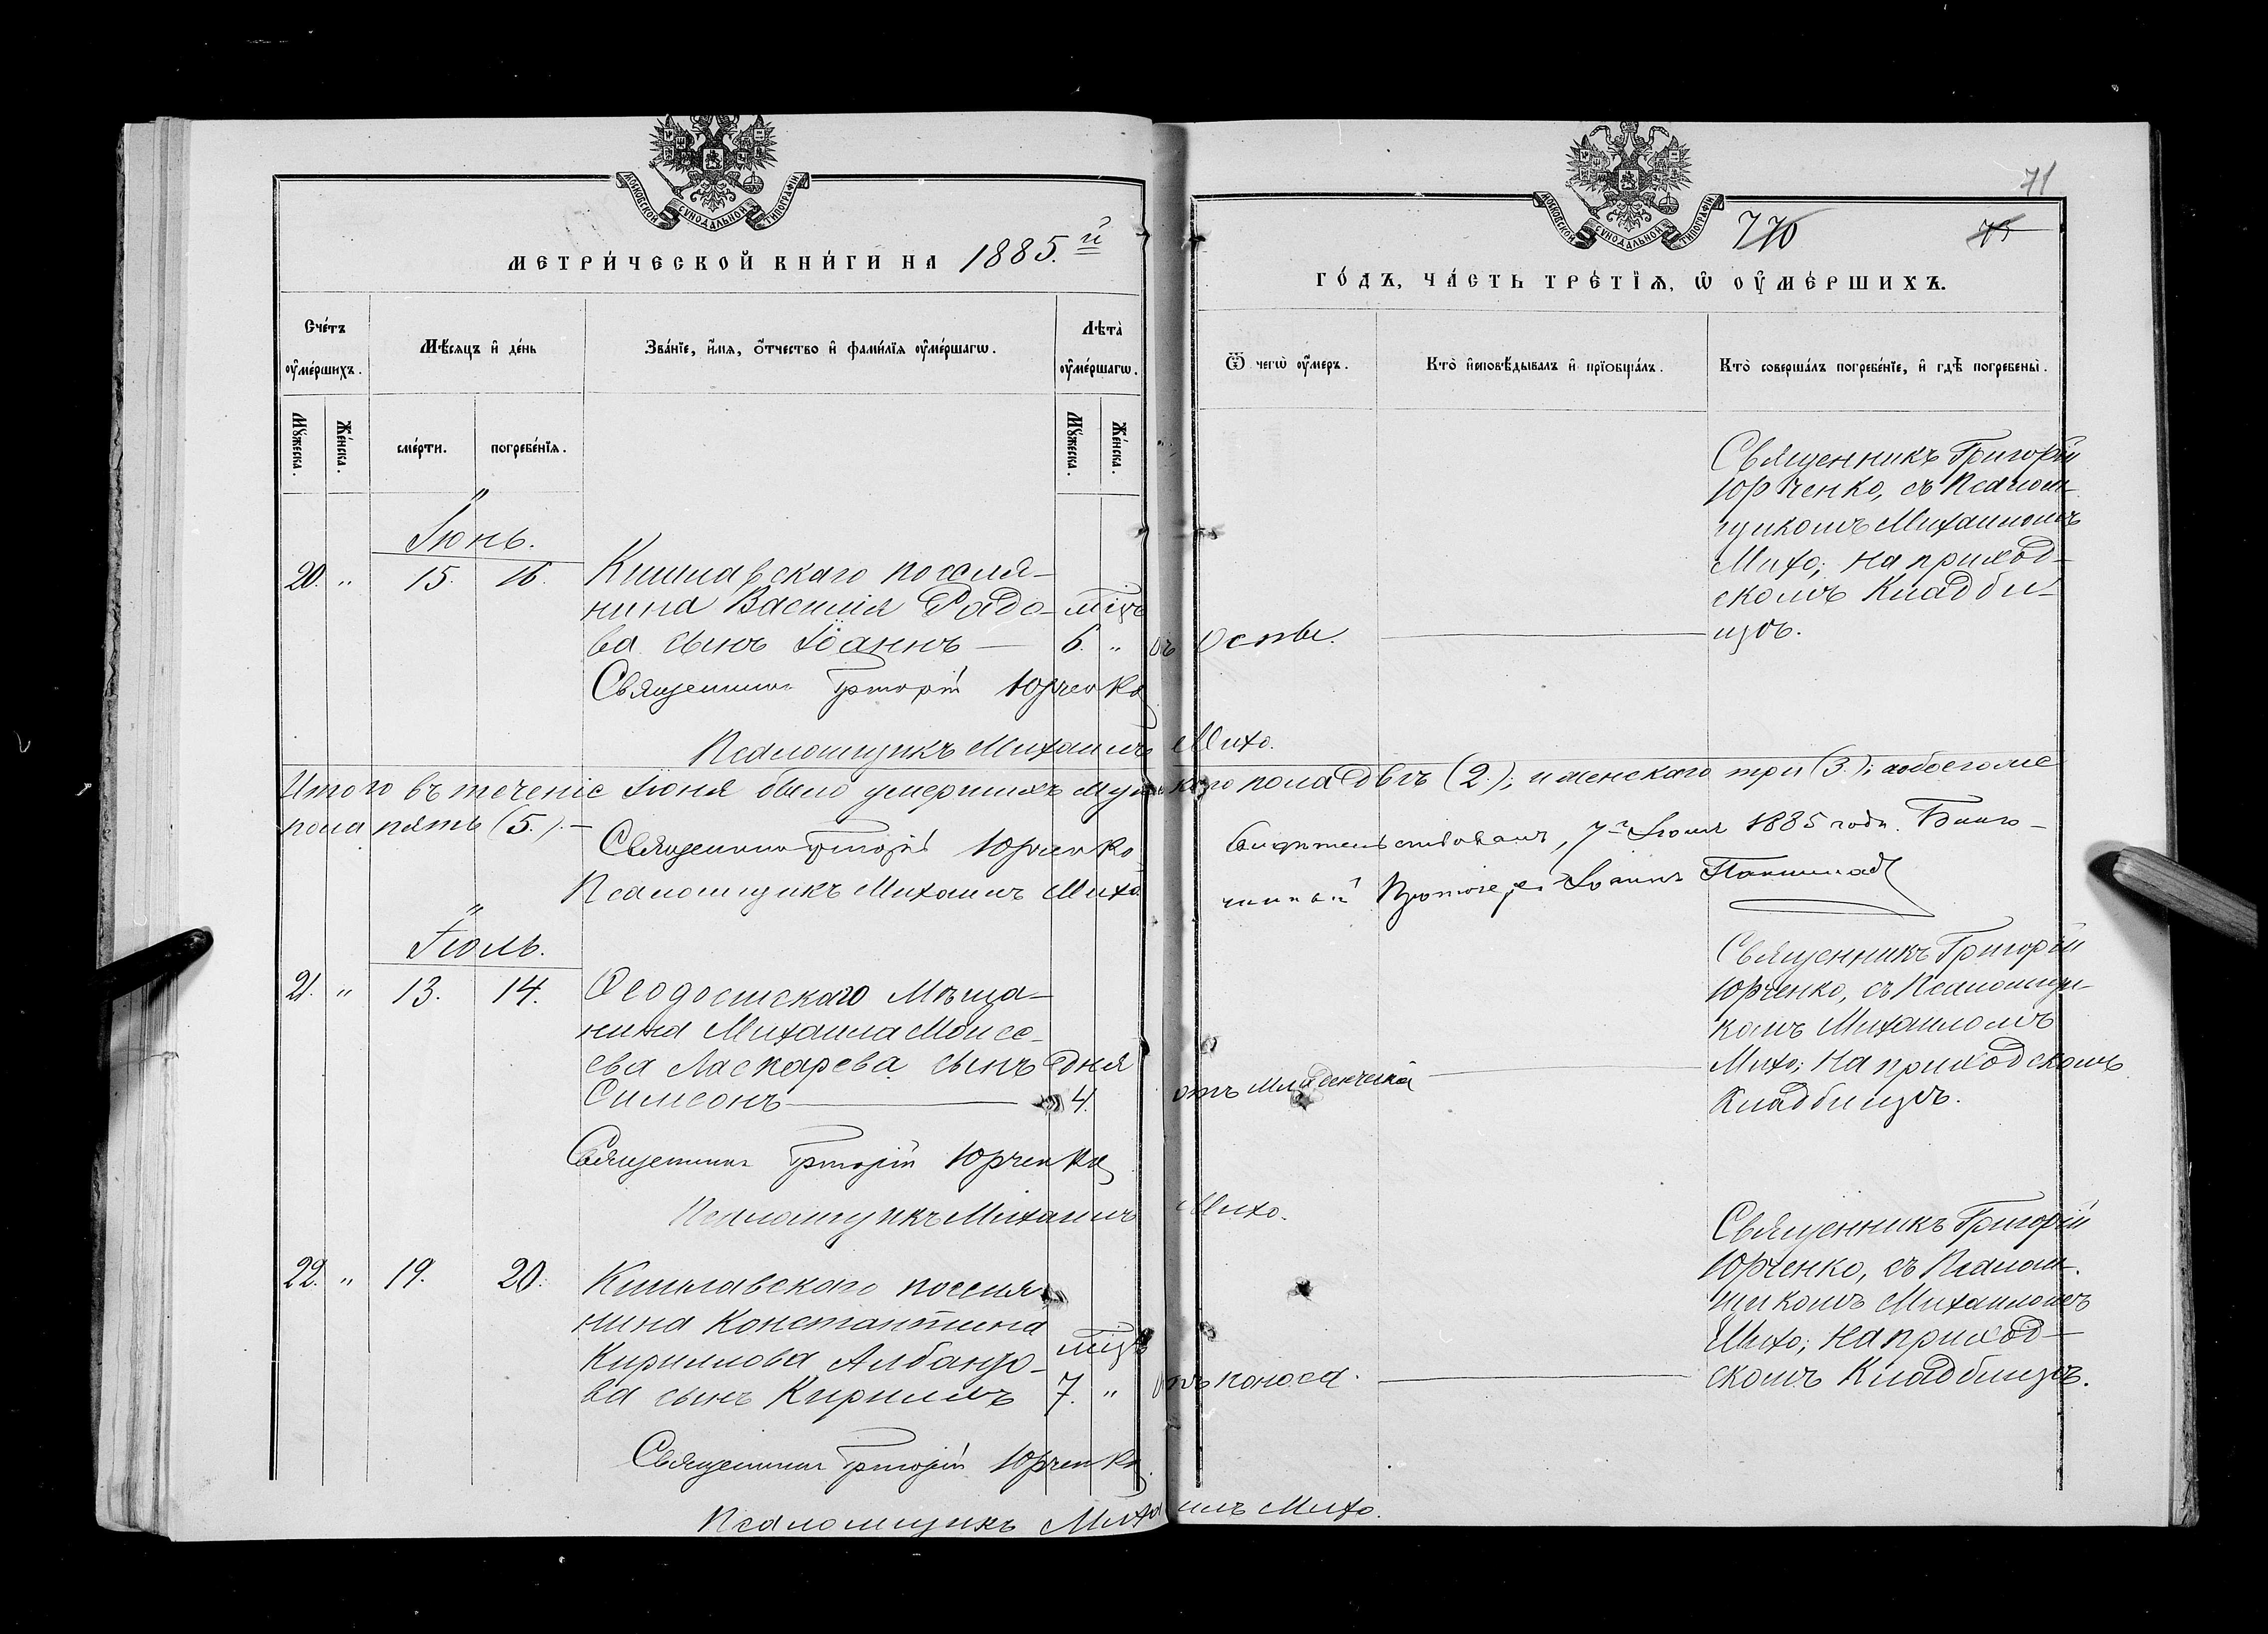 МОСКОВСКОЙ СѴНОДАЛЬНОЙ ТИПОГРАФІИ
МЕТРИ́ЧЕСКОЙ КНИ́ГИ НА 1885.й
Сче́тъ ᲂу҆ме́ршихъ.
Мѣ́сяцъ и҆ де́нь
Зва́нїе, и҆́мѧ, ѻ҆́тчество и҆ фами́лїѧ ᲂу҆ме́ршагѡ.
Лѣ́та ᲂу҆ме́ршагѡ.
Мꙋ́жеска.
Же́нска.
сме́рти.
погребе́нїѧ.
Мꙋ́жеска.
Же́нска.
Іюнь.
20. " 15. 16. Кишлавскаго поселя-
нина Василія Радо- мѣц.
ва сынъ Іоаннъ — 6. "
Священникъ Григорій Юрченко
Псаломщикъ Михаилъ Михо.
Итого въ теченіе Іюня было умершихъ мужскаго пола двѣ (2.); и женскаго три (3.); а обоего же
пола пять (5.).—
Священникъ Григорій Юрченко
Псаломщикъ Михаилъ Михо
Іюль.
21. " 13. 14. Ѳеодосійскаго мѣща-
нина Михаила Моисе-
ева Ласкарева сынъ дня
Симеонъ — 4.
Священникъ Григорій Юрченко
Псаломщикъ Михаилъ Михо.
22. " 19. 20. Кишлавскаго поселя-
нина Константина
Кириллова Албанцо- мѣц.
ва сынъ Кириллъ 7. "
Священникъ Григорій Юрченко
Псаломщикъ Михаилъ Михо.
МОСКОВСКОЙ СѴНОДАЛЬНОЙ ТИПОГРАФІИ
71
770
ГО́ДЪ, ЧА́СТЬ ТРЕ́ТЇѦ, Ѡ҆ ОУ҆МЕ́РШИХЪ.
Ѿ чегѡ̀ ᲂу҆́меръ.
Кто̀ и҆сповѣ́дывалъ и҆ прїѻбща́лъ.
Кто̀ соверша́лъ погребе́нїе, и҆ гдѣ̀ погребены̀.
Священникъ Григорій
Юрченко, съ Псалом-
щикомъ Михаиломъ
Михо; на приход-
скомъ кладби-
щѣ.
отъ Оспы.
Свидѣтельствовалъ, 7го Іюля 1885 года. Благо-
чинный Протоіерей Іоаннъ
Священникъ Григорій
Юрченко, съ Псаломщи-
комъ Михаиломъ
Михо; на приходскомъ
кладбищѣ.
отъ младенческой
Священникъ Григорій
Юрченко, съ Псалом-
щикомъ Михаиломъ
Михо; на приход-
скомъ кладбищѣ.
отъ поноса.